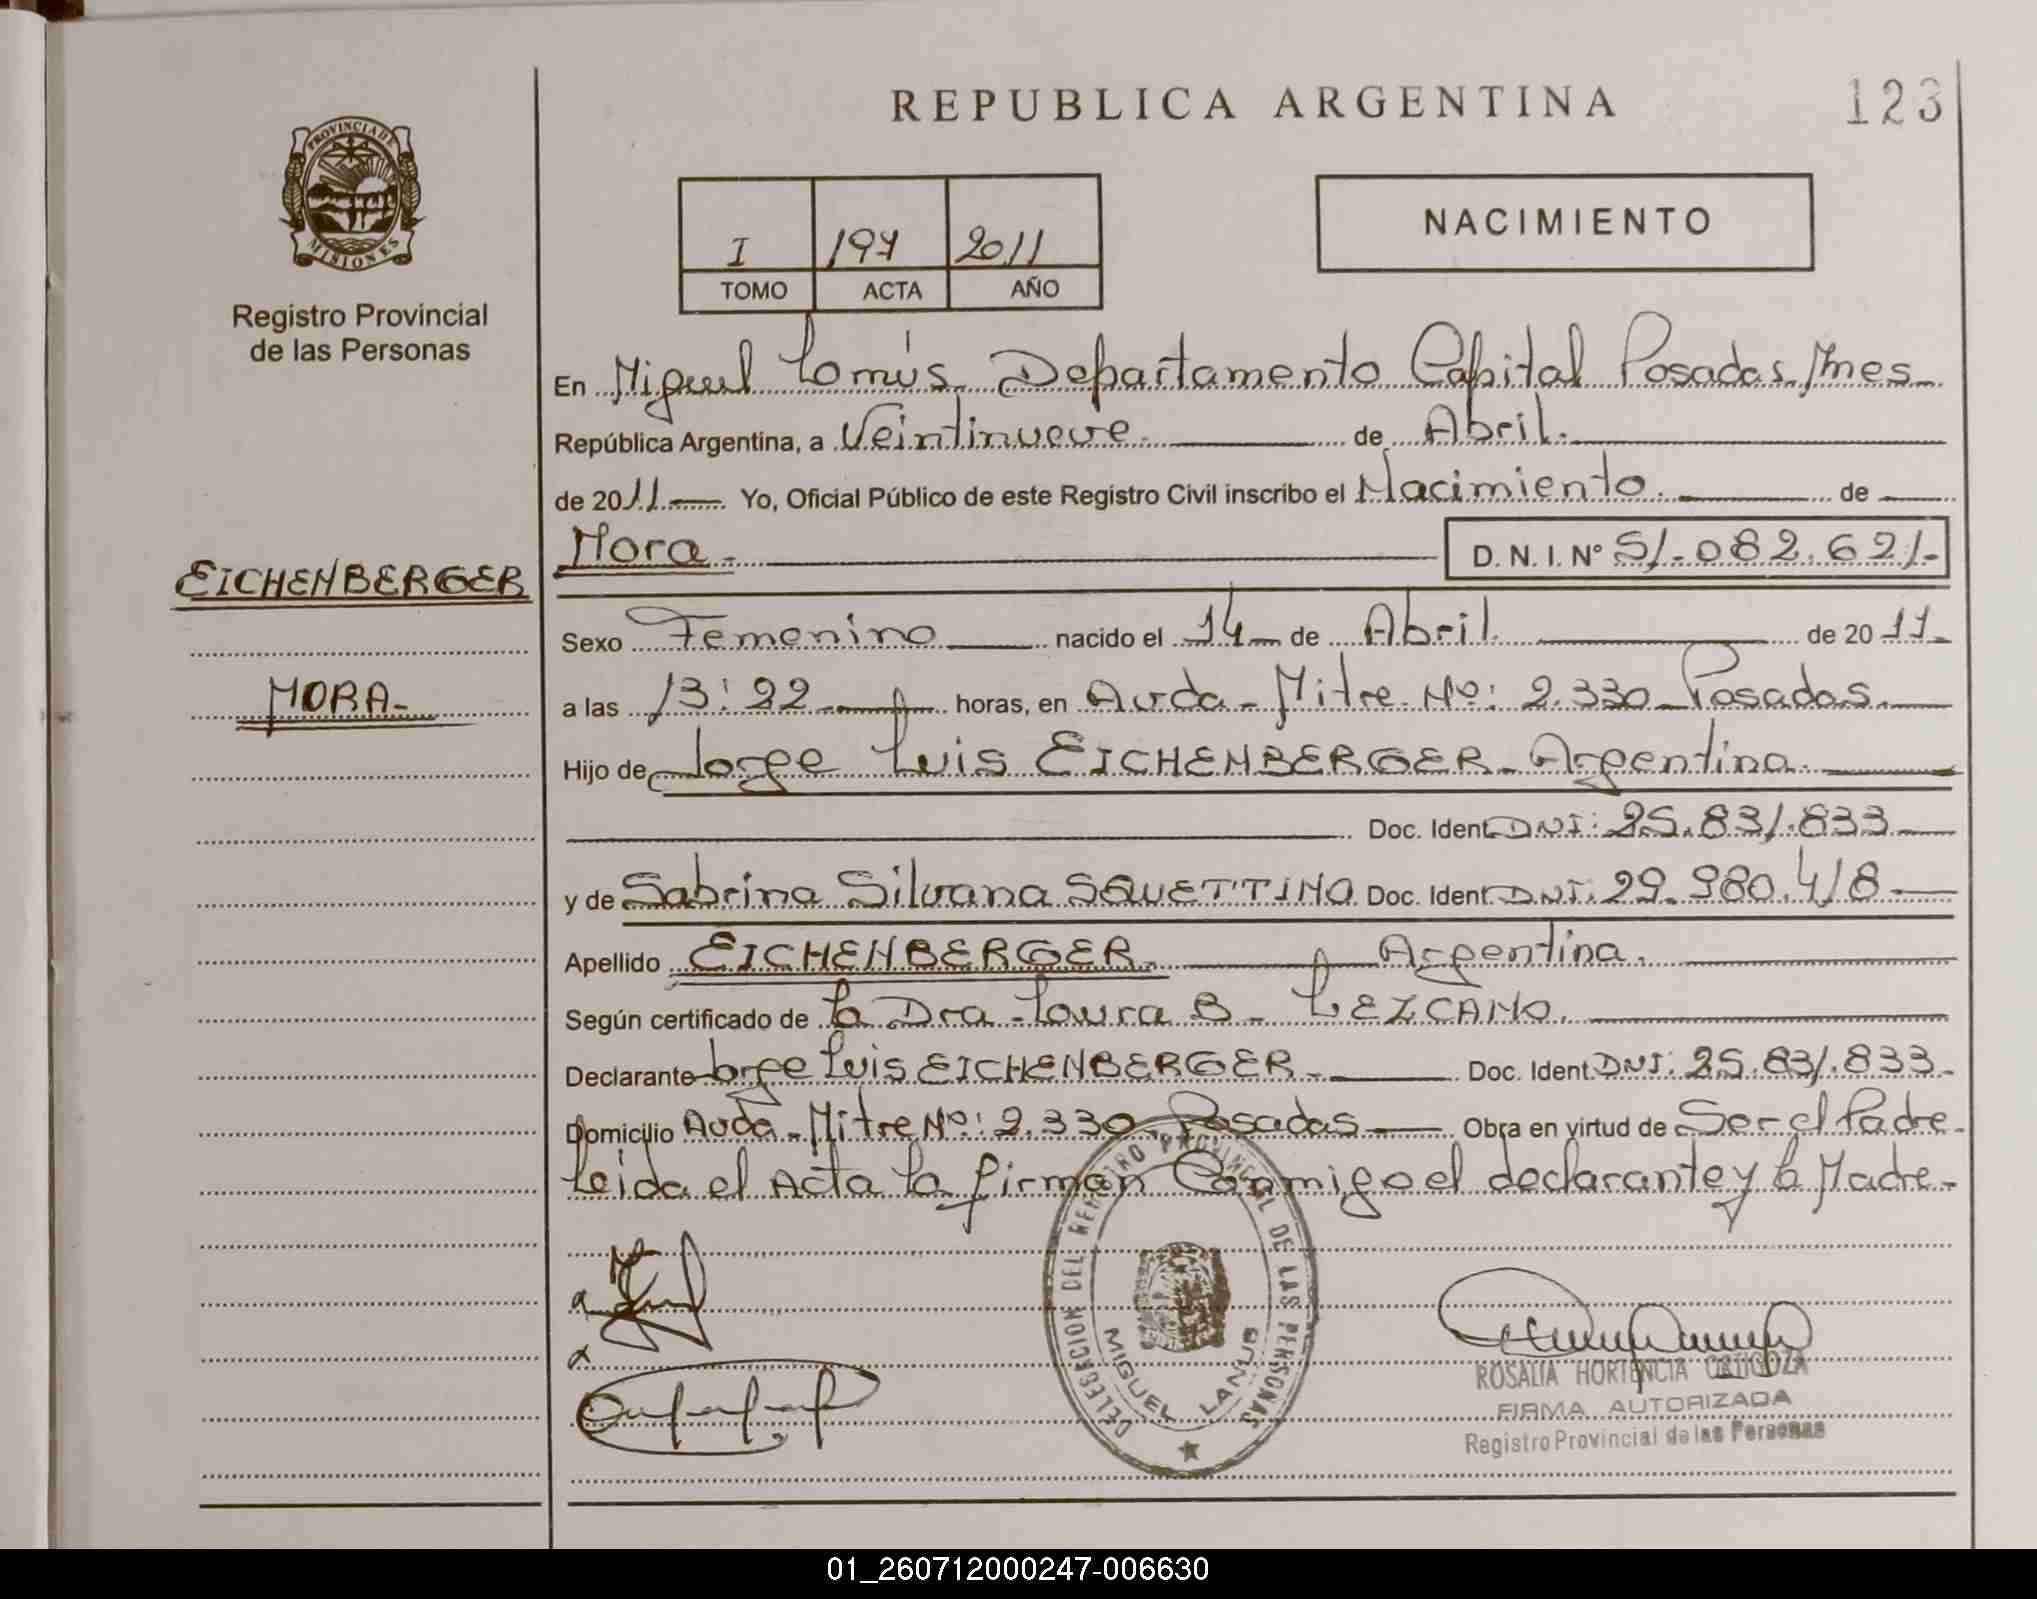 REPUBLICA ARGENTINA
123
PROVINCIA DE
MISIONES
Registro Provincial
de las Personas
I 197 2011
TOMO ACTA AÑO
NACIMIENTO
En Miguel Lanús Departamento Capital Posadas Mnes
República Argentina, a Veintinueve de Abril.
de 2011 Yo, Oficial Público de este Registro Civil inscribo el Nacimiento. de
Mora D. N. I. N° 51.082.621.
EICHENBERGER
MORA
Sexo Femenino nacido el 14 de Abril de 2011
a las 13:22 horas, en Avda. Mitre Nº: 2.330 Posadas.
Hijo de Jorge Luis EICHENBERGER Argentina.
Doc. Ident. DNI: 25.831.833
y de Sabrina Silvana SQUETTINO Doc. Ident. DNI: 29.980.418
Apellido EICHENBERGER. Argentina.
Según certificado de la Dra. Laura B. LEZCANO.
Declarante Jorge Luis EICHENBERGER Doc. Ident. DNI: 25.831.833
Domicilio Avda. Mitre Nº: 2.330 Posadas Obra en virtud de Ser el Padre
Leida el Acta la firman Conmigo el declarante y la Madre
DELEGACION DEL REGISTRO PROVINCIAL DE LAS PERSONAS
MIGUEL LANUS
ROSALIA HORTENCIA ORTIGOZA
FIRMA AUTORIZADA
Registro Provincial de las Personas
01_260712000247-006630